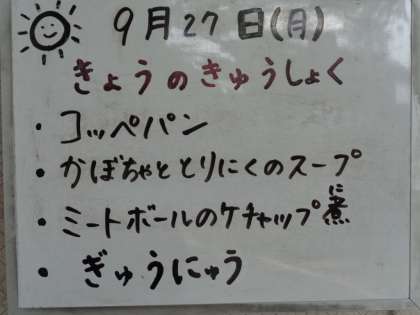 9月27日(月)
きょうのきゅうしょく
・コッペパン
・かぼちゃととりにくのスープ
・ミートボールのケチャップ煮
に
・ぎゅうにゅう